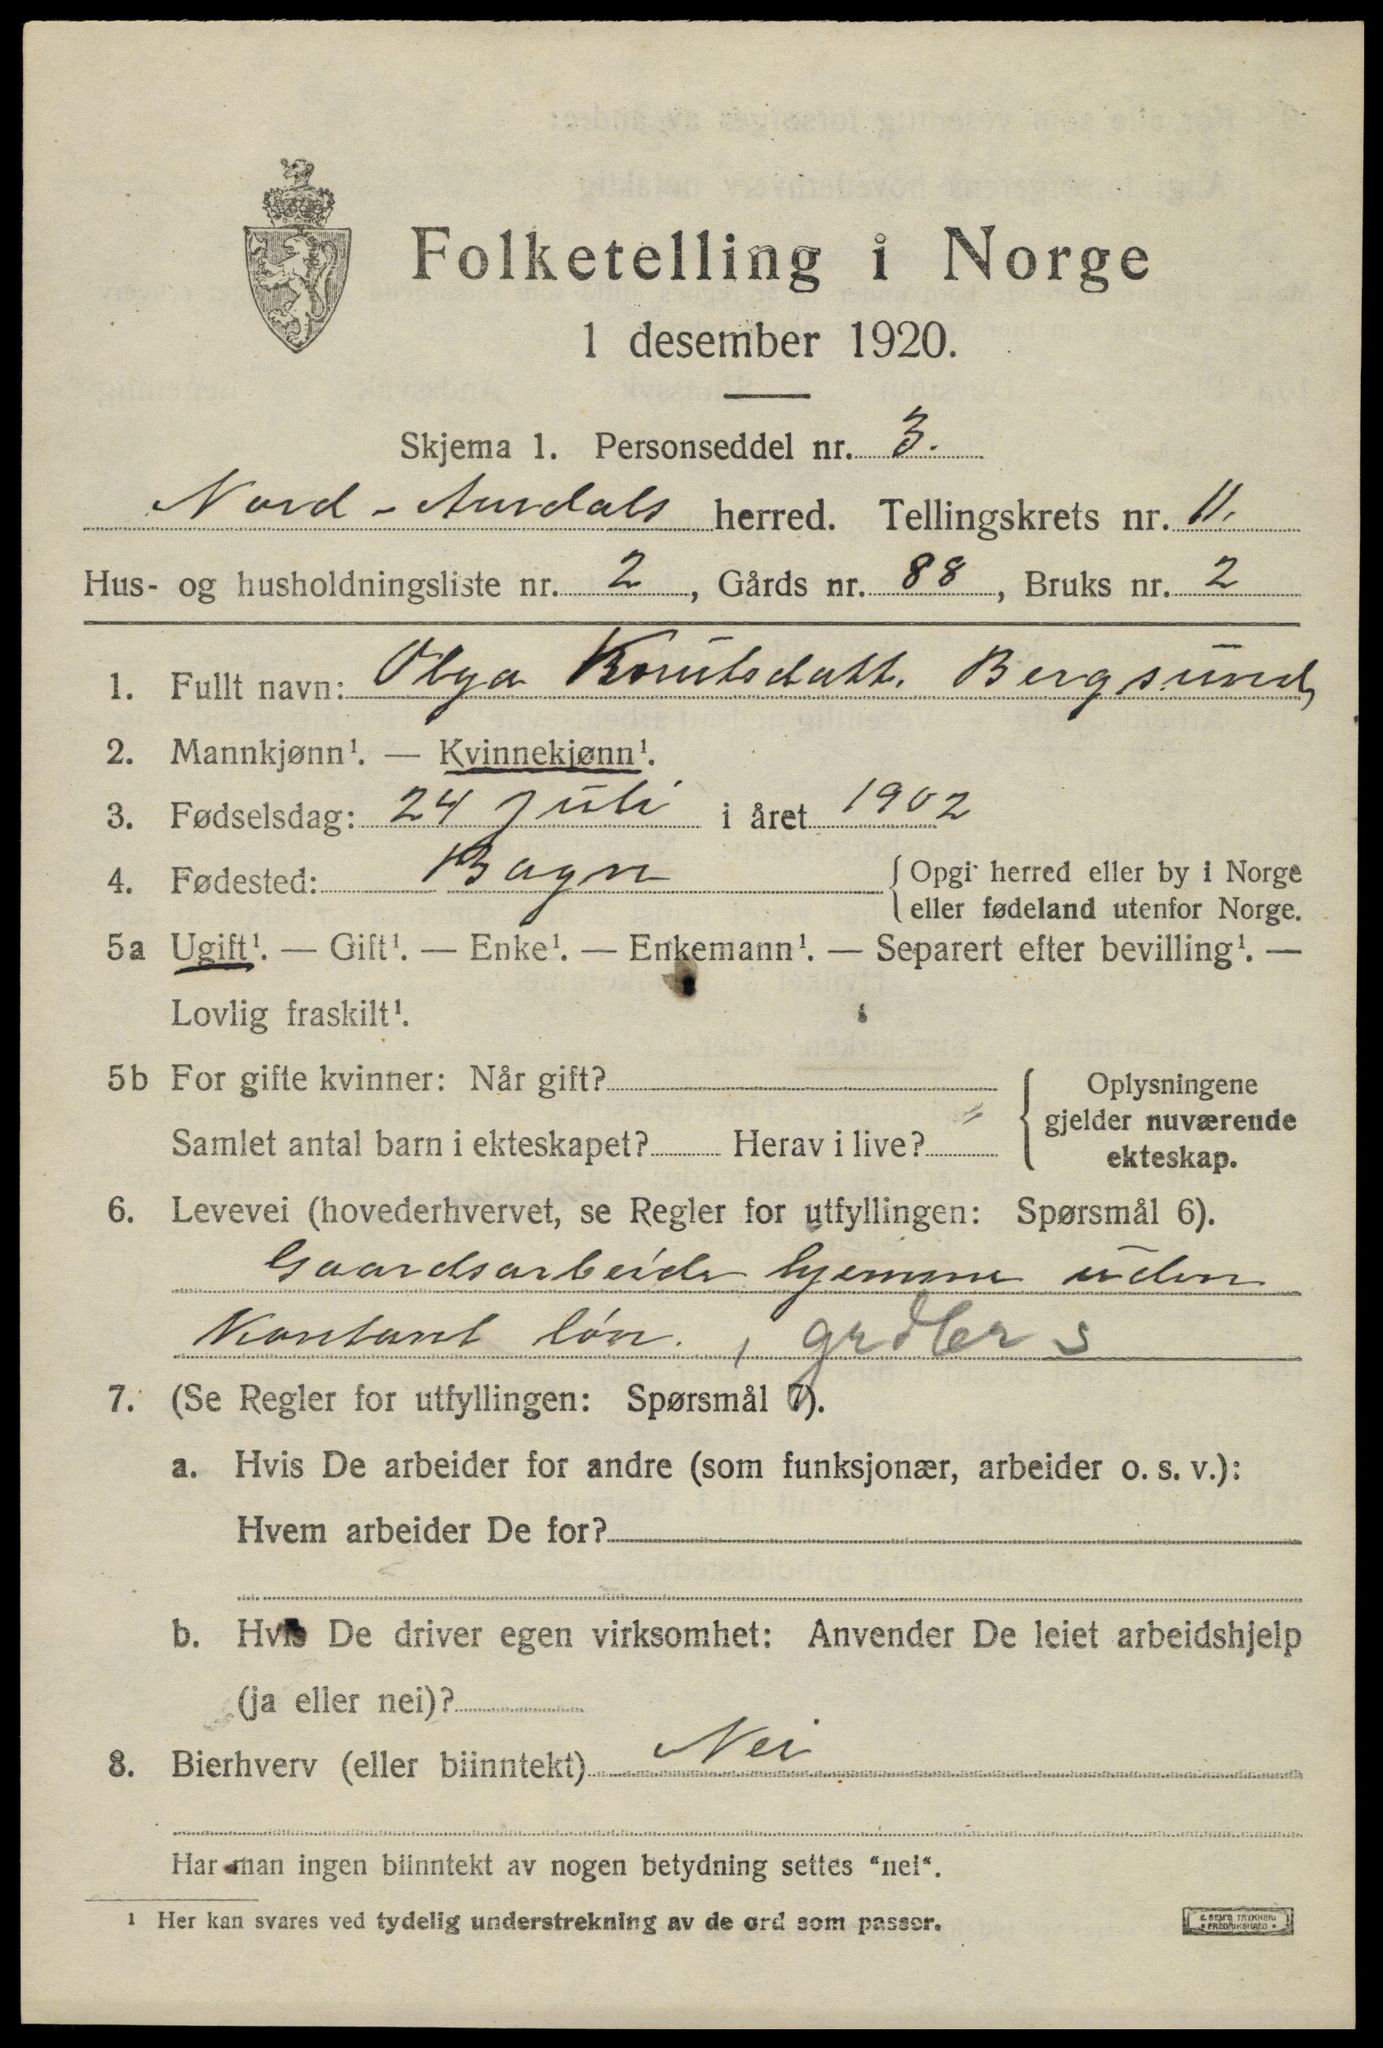 Folketelling i Norge
1 desember 1920.
Skjema 1. Personseddel nr. 3.
Nord-Aurdals herred. Tellingskrets nr. 11.
Hus- og husholdningsliste nr. 2, Gårds nr. 88, Bruks nr. 2
1. Fullt navn: Olga Knutsdatt. Bergsund
2. Mannkjønn¹. — Kvinnekjønn¹.
3. Fødselsdag: 24 juli i året 1902
4. Fødested: Bagn { Opgi herred eller by i Norge
eller fødeland utenfor Norge.
5a Ugift¹. — Gift¹. — Enke¹. — Enkemann¹. — Separert efter bevilling¹. —
Lovlig fraskilt¹.
5b For gifte kvinner: Når gift?
Samlet antal barn i ekteskapet? Herav i live?
{ Oplysningene
gjelder nuværende
ekteskap.
6. Levevei (hovederhvervet, se Regler for utfyllingen: Spørsmål 6).
Gaardsarbeide hjemme uden
Kontant løn. , grdbr s
7. (Se Regler for utfyllingen: Spørsmål 7).
a. Hvis De arbeider for andre (som funksjonær, arbeider o. s. v.):
Hvem arbeider De for?
b. Hvis De driver egen virksomhet: Anvender De leiet arbeidshjelp
(ja eller nei)?
8. Bierhverv (eller biinntekt) Nei
Har man ingen biinntekt av nogen betydning settes "nei".
¹ Her kan svares ved tydelig understrekning av de ord som passer.
E. SEM'S TRYKKERI
FREDRIKSHALD